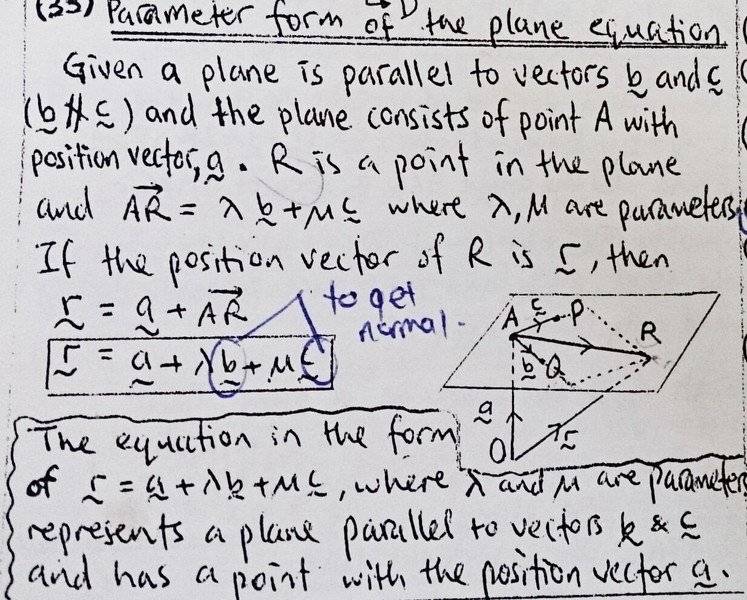 (35) Parameter form of the plane equation
Given a plane is parallel to vectors b and c
(b ∦ c) and the plane consists of point A with
position vector, a. R is a point in the plane
and AR = λb + μc where λ, μ are parameters.
If the position vector of R is r, then
r = a + AR
to get
normal.
r = a + λb + μc
A c P R
b Q
a
O r
The equation in the form
of r = a + λb + μc, where λ and μ are parameters
represents a plane parallel to vectors b & c
and has a point with the position vector a.